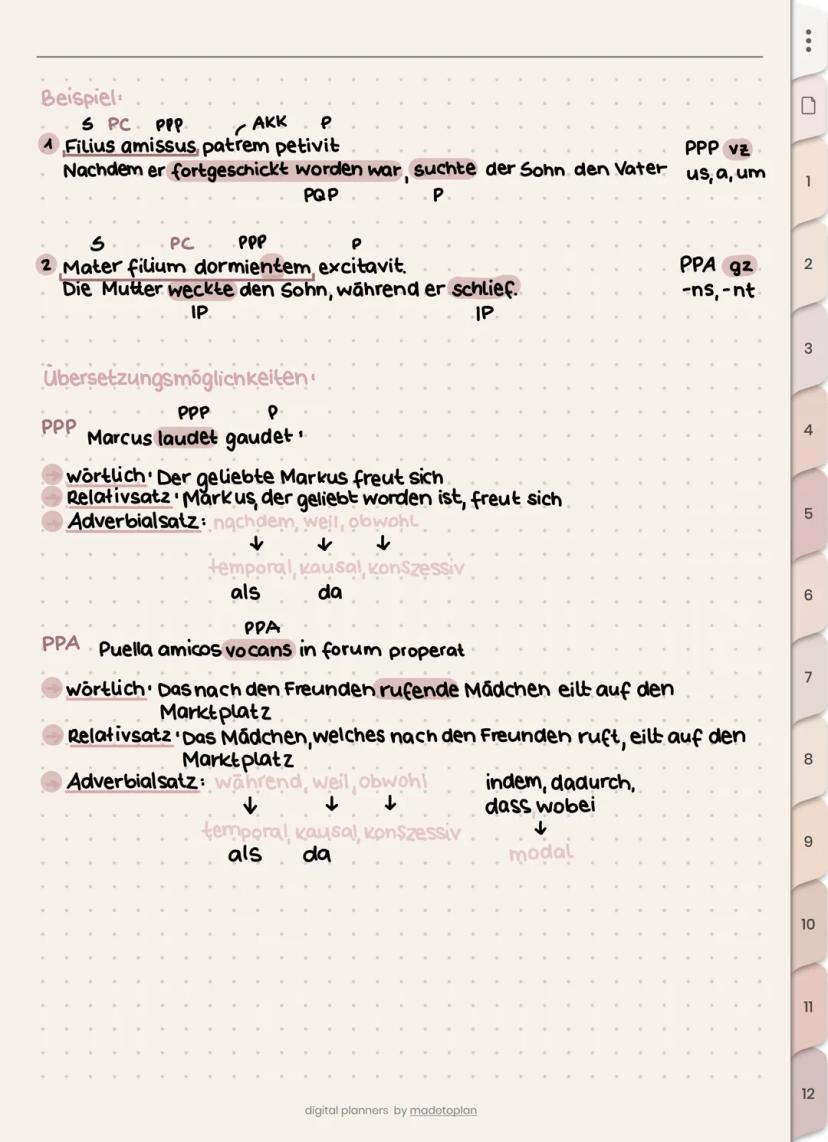 Beispiel:
S PC PPP AKK P
1 Filius amissus patrem petivit
PPP vz
Nachdem er fortgeschickt worden war, suchte der Sohn den Vater
us, a, um
PQP P
S PC PPP P
2 Mater filium dormientem excitavit.
PPA gz
Die Mutter weckte den Sohn, während er schlief.
-ns, -nt
IP IP
Übersetzungsmöglichkeiten:
PPP P
PPP Marcus laudet gaudet
→ wörtlich: Der geliebte Markus freut sich
→ Relativsatz: Markus, der geliebt worden ist, freut sich
→ Adverbialsatz: nachdem, weil, obwohl
↓ ↓ ↓
temporal, kausal, konszessiv
als da
PPA
PPA Puella amicos vocans in forum properat
→ wörtlich: Das nach den Freunden rufende Mädchen eilt auf den
Marktplatz
→ Relativsatz: Das Mädchen, welches nach den Freunden ruft, eilt auf den
Marktplatz
→ Adverbialsatz: während, weil, obwohl indem, dadurch,
dass wobei
↓ ↓ ↓ ↓
temporal, kausal, konszessiv
modal
als da
digital planners by madetoplan
1
2
3
4
5
6
7
8
9
10
11
12